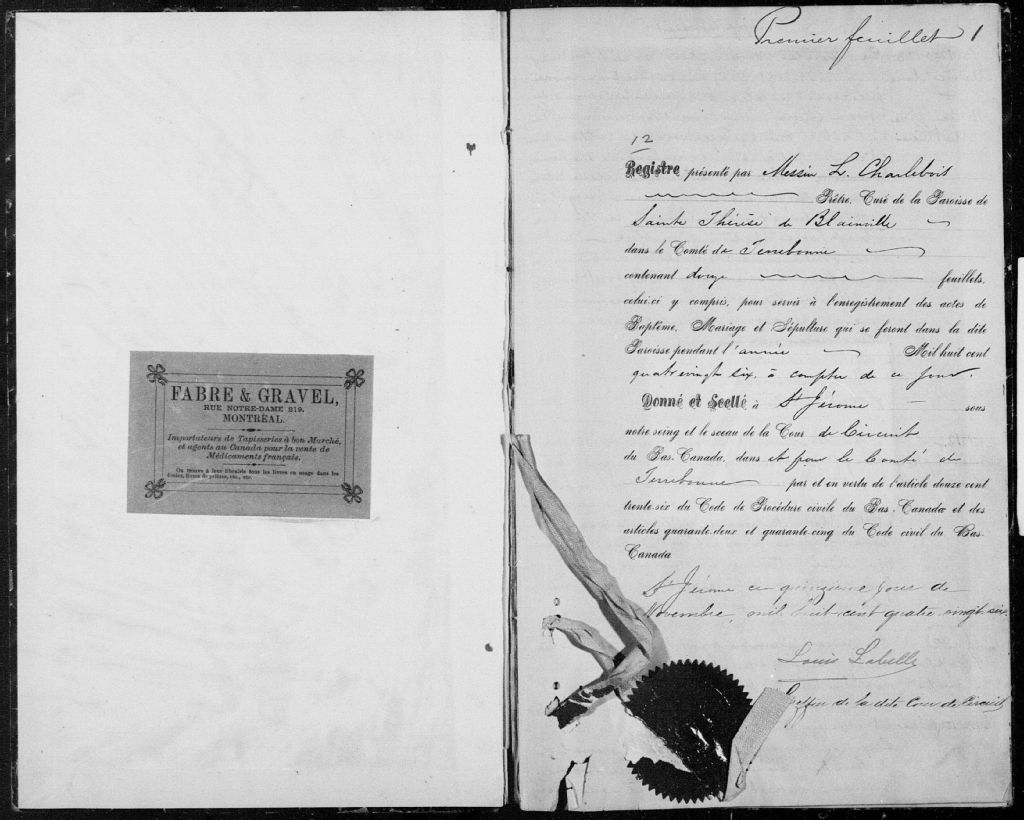 FABRE & GRAVEL,
RUE NOTRE-DAME 219.
MONTRÉAL.
Importateurs de Tapisseries à bon Marché,
et agents au Canada pour la vente de
Médicaments français.
On trouve à leur librairie tous les livres en usage dans les
écoles, livres de prières, etc., etc.
Premier feuillet 1
12
Registre présenté par Messire L. Charlebois
Prêtre, Curé de la Paroisse de
Sainte Thérèse de Blainville
dans le Comté de Terrebonne
contenant douze feuillets,
celui-ci y compris, pour servir à l'enregistrement des actes de
Baptême, Mariage et Sépulture qui se feront dans la dite
Paroisse pendant l'année Mil huit cent
quatrevingt six, à compter de ce jour.
Donné et Scellé à St Jérome sous
notre seing et le sceau de la Cour de Circuit
du Bas-Canada, dans et pour le Comté de
Terrebonne par et en vertu de l'article douze cent
trente-six du Code de Procédure civile du Bas-Canada et des
articles quarante-deux et quarante-cinq du Code civil du Bas-
Canada
St Jérome ce quinzième jour de
Novembre, mil huit cent quatre vingt six.
Louis Labelle
Greffier de la dite Cour de Circuit